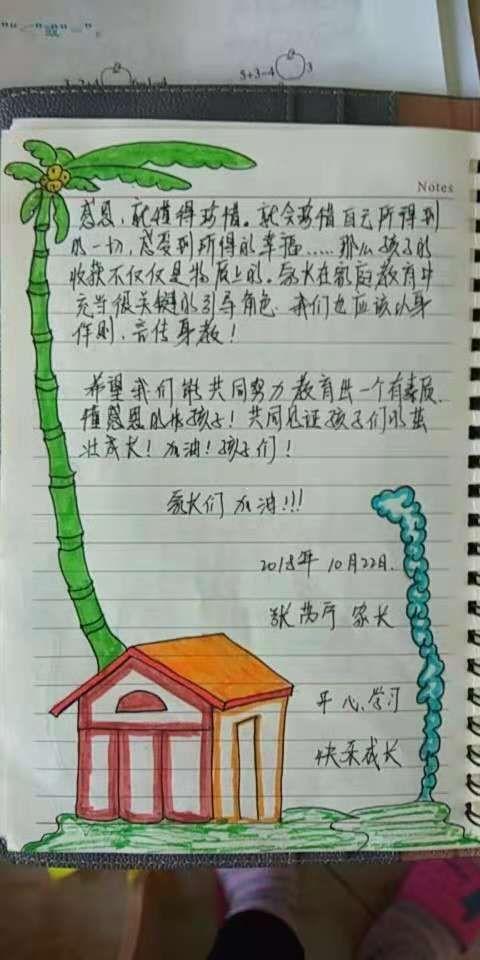 "<"或"="。
5+3-4 3
Notes
感恩，就懂得珍惜。就会珍惜自己所得到
的一切，感受到所得的幸福……那么孩子的
收获不仅仅是物质上的。家长在家庭教育中
充当很关键的引导角色.我们也应该以身
作则，言传身教！
希望我们能共同努力教育出一个有素质.
懂感恩的好孩子！共同见证孩子们的茁
壮成长！加油！孩子们！
家长们加油!!!
2018年10月22日.
张 家长
开心学习
快乐成长